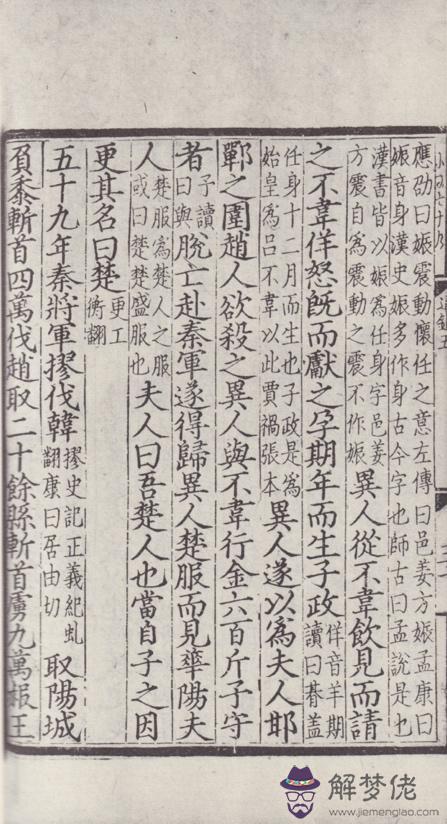 應劭曰娠震動懷任之意左傳曰邑姜方娠孟康曰
娠音身漢史娠多作身古今字也師古曰孟說是也
漢書皆以娠爲任身字邑姜
方震自爲震動之震不作娠
異人從不韋飲見而請
之不韋佯怒旣而獻之孕期年而生子政
佯音羊期
讀曰朞蓋
任身十二月而生也子政是爲
始皇爲呂不韋以此賈禍張本
異人遂以爲夫人邯
鄲之圍趙人欲殺之異人與不韋行金六百斤予守
者
予讀
曰與
脫亡赴秦軍遂得歸異人楚服而見華陽夫
人
楚服爲楚人之服
或曰楚楚盛服也
夫人曰吾楚人也當自子之因
更其名曰楚
更工
衡翻
五十九年秦將軍摎伐韓
摎史記正義紀虬
翻康曰居由切
取陽城
負黍斬首四萬伐趙取二十餘縣斬首虜九萬赧王
解梦佬
www.jiemenglao.com